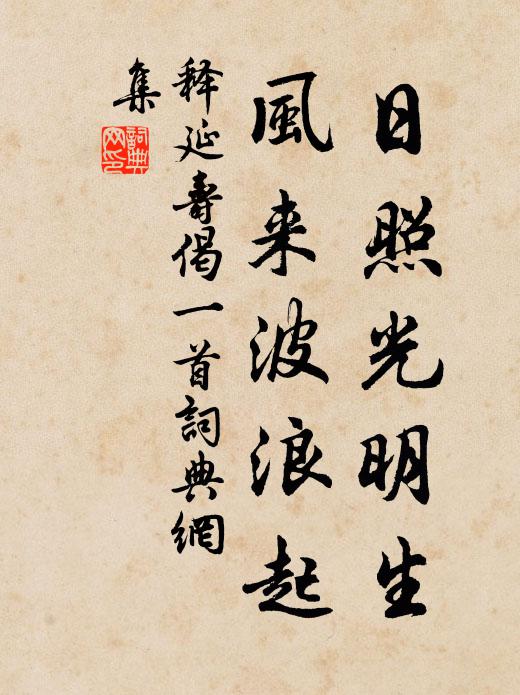 日照光明生
風来波浪起
释延壽偈一首詞典網
集
詞典網印